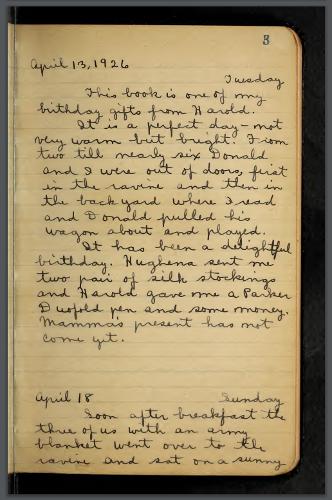 3
April 13, 1926
Tuesday
This book is one of my
birthday gifts from Harold.
It is a perfect day - not
very warm but bright. From
two till nearly six Donald
and I were out of doors, first
in the ravine and then in
the back yard where I read
and Donald pulled his
wagon about and played.
It has been a delightful
birthday. Hughena sent me
two pair of silk stockings
and Harold gave me a Parker
Duofold pen and some money.
Mamma's present has not
come yet.
April 18 Sunday
Soon after breakfast the
three of us with an army
blanket went over to the
ravine and sat on a sunny